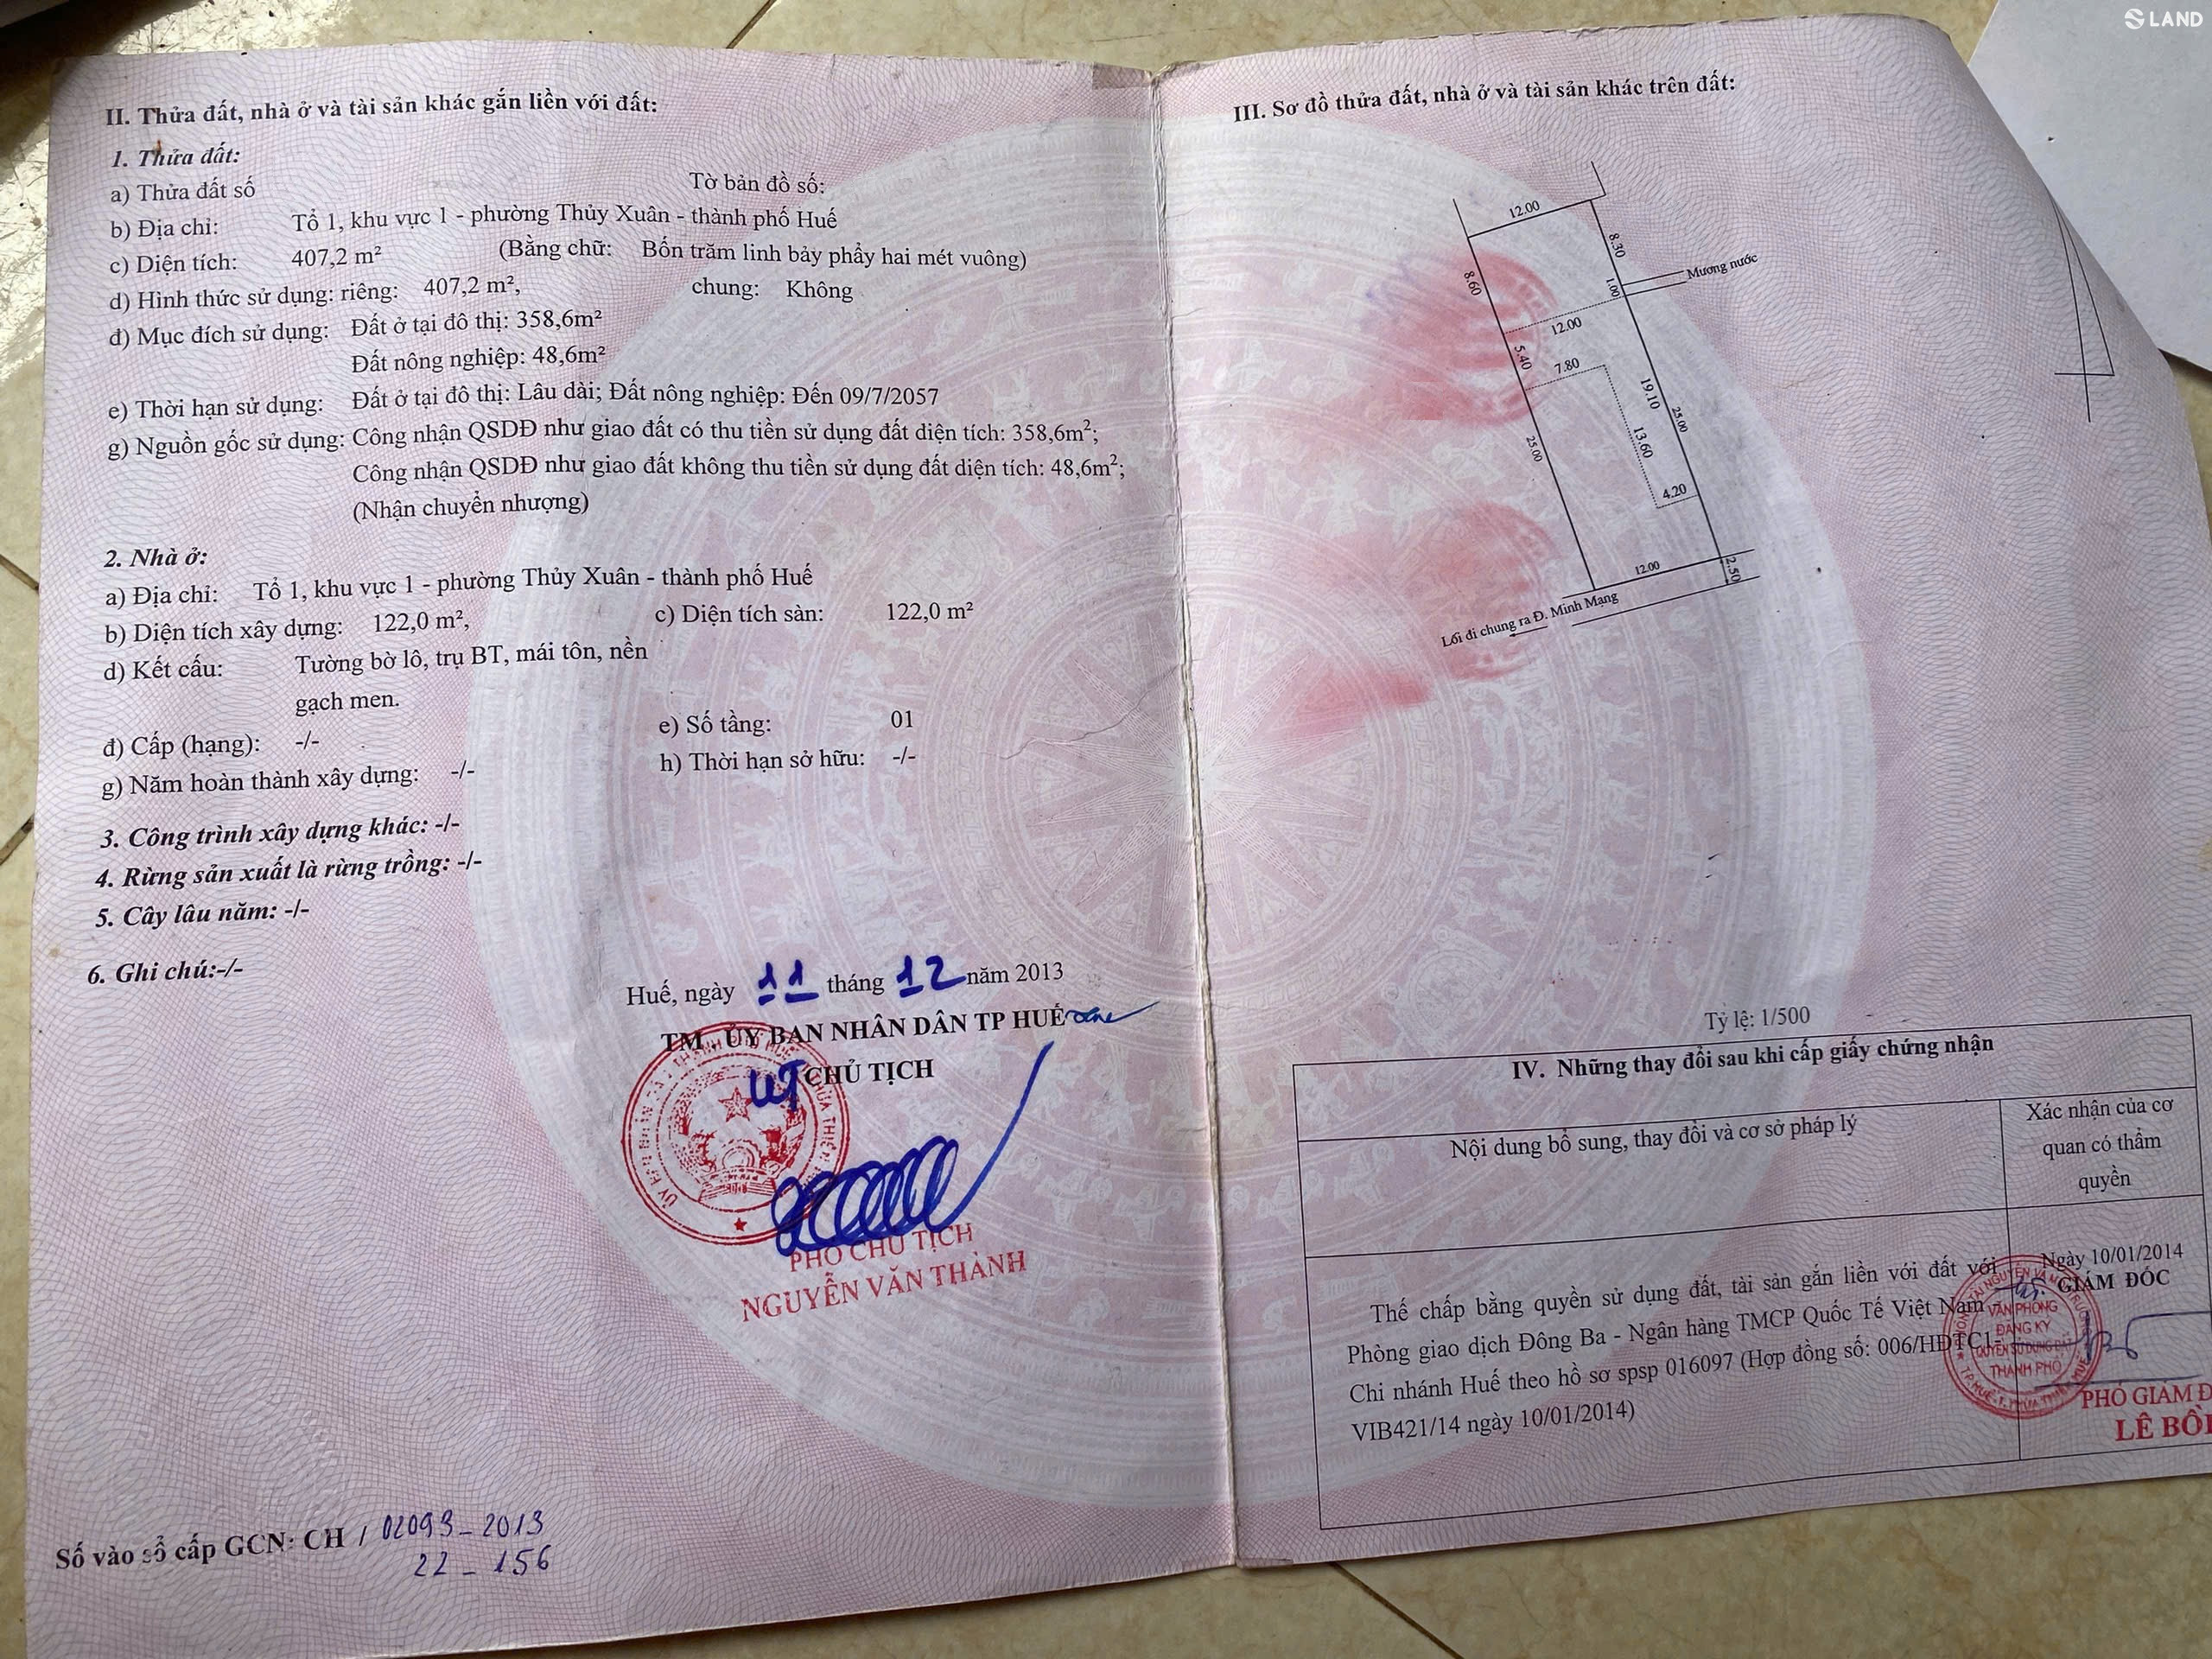 LAND
II. Thửa đất, nhà ở và tài sản khác gắn liền với đất:
1. Thửa đất:
a) Thửa đất số Tờ bản đồ số:
b) Địa chỉ: Tổ 1, khu vực 1 - phường Thủy Xuân - thành phố Huế
c) Diện tích: 407,2 m² (Bằng chữ: Bốn trăm linh bảy phẩy hai mét vuông)
d) Hình thức sử dụng: riêng: 407,2 m², chung: Không
đ) Mục đích sử dụng: Đất ở tại đô thị: 358,6m²
Đất nông nghiệp: 48,6m²
e) Thời hạn sử dụng: Đất ở tại đô thị: Lâu dài; Đất nông nghiệp: Đến 09/7/2057
g) Nguồn gốc sử dụng: Công nhận QSDĐ như giao đất có thu tiền sử dụng đất diện tích: 358,6m²;
Công nhận QSDĐ như giao đất không thu tiền sử dụng đất diện tích: 48,6m²;
(Nhận chuyển nhượng)
2. Nhà ở:
a) Địa chỉ: Tổ 1, khu vực 1 - phường Thủy Xuân - thành phố Huế
b) Diện tích xây dựng: 122,0 m², c) Diện tích sàn: 122,0 m²
d) Kết cấu: Tường bờ lô, trụ BT, mái tôn, nền
gạch men.
e) Số tầng: 01
đ) Cấp (hạng): -/-
h) Thời hạn sở hữu: -/-
g) Năm hoàn thành xây dựng: -/-
3. Công trình xây dựng khác: -/-
4. Rừng sản xuất là rừng trồng: -/-
5. Cây lâu năm: -/-
6. Ghi chú:-/-
Huế, ngày 11 tháng 12 năm 2013
TM. ỦY BAN NHÂN DÂN TP HUẾ
KT CHỦ TỊCH
PHÓ CHỦ TỊCH
NGUYỄN VĂN THÀNH
Số vào sổ cấp GCN: CH / 02093_2013
22_156
III. Sơ đồ thửa đất, nhà ở và tài sản khác trên đất:
12.00
8.30
Mương nước
8.60
1.00
12.00
5.40
7.80
19.10
25.00
13.60
25.00
4.20
12.00
2.50
Lối đi chung ra Đ. Minh Mạng
Tỷ lệ: 1/500
IV. Những thay đổi sau khi cấp giấy chứng nhận
Nội dung bổ sung, thay đổi và cơ sở pháp lý
Xác nhận của cơ
quan có thẩm
quyền
Thế chấp bằng quyền sử dụng đất, tài sản gắn liền với đất với
Phòng giao dịch Đông Ba - Ngân hàng TMCP Quốc Tế Việt Nam -
Chi nhánh Huế theo hồ sơ spsp 016097 (Hợp đồng số: 006/HĐTC1-
VIB421/14 ngày 10/01/2014)
Ngày 10/01/2014
GIÁM ĐỐC
VĂN PHÒNG
ĐĂNG KÝ
QUYỀN SỬ DỤNG ĐẤT
THÀNH PHỐ
PHÓ GIÁM Đ
LÊ BỒI